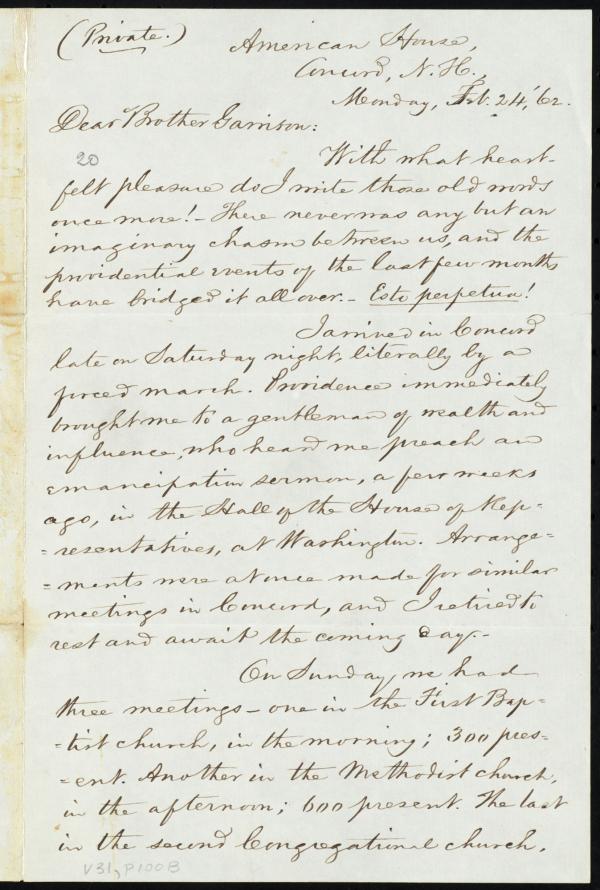 (Private.)
American House,
Concord, N. H.,
Monday, Feb. 24, '62.
Dear Brother Garrison:
20
With what heart-
felt pleasure do I write those old words
once more! - There never was any but an
imaginary chasm between us, and the
providential events of the last few months
have bridged it all over. - Esto perpetua!
I arrived in Concord
late on Saturday night, literally by a
forced march. Providence immediately
brought me to a gentleman of wealth and
influence, who heard me preach an
emancipation sermon, a few weeks
ago, in the Hall of the House of Rep-
-resentatives, at Washington. Arrange-
-ments were at once made for similar
meetings in Concord, and I retired to
rest and await the coming day. -
On Sunday, we had
three meetings - one in the First Bap-
-tist church, in the morning; 300 pres-
-ent. Another in the Methodist church,
in the afternoon; 600 present. The last
in the second Congregational church,
V31, P100B